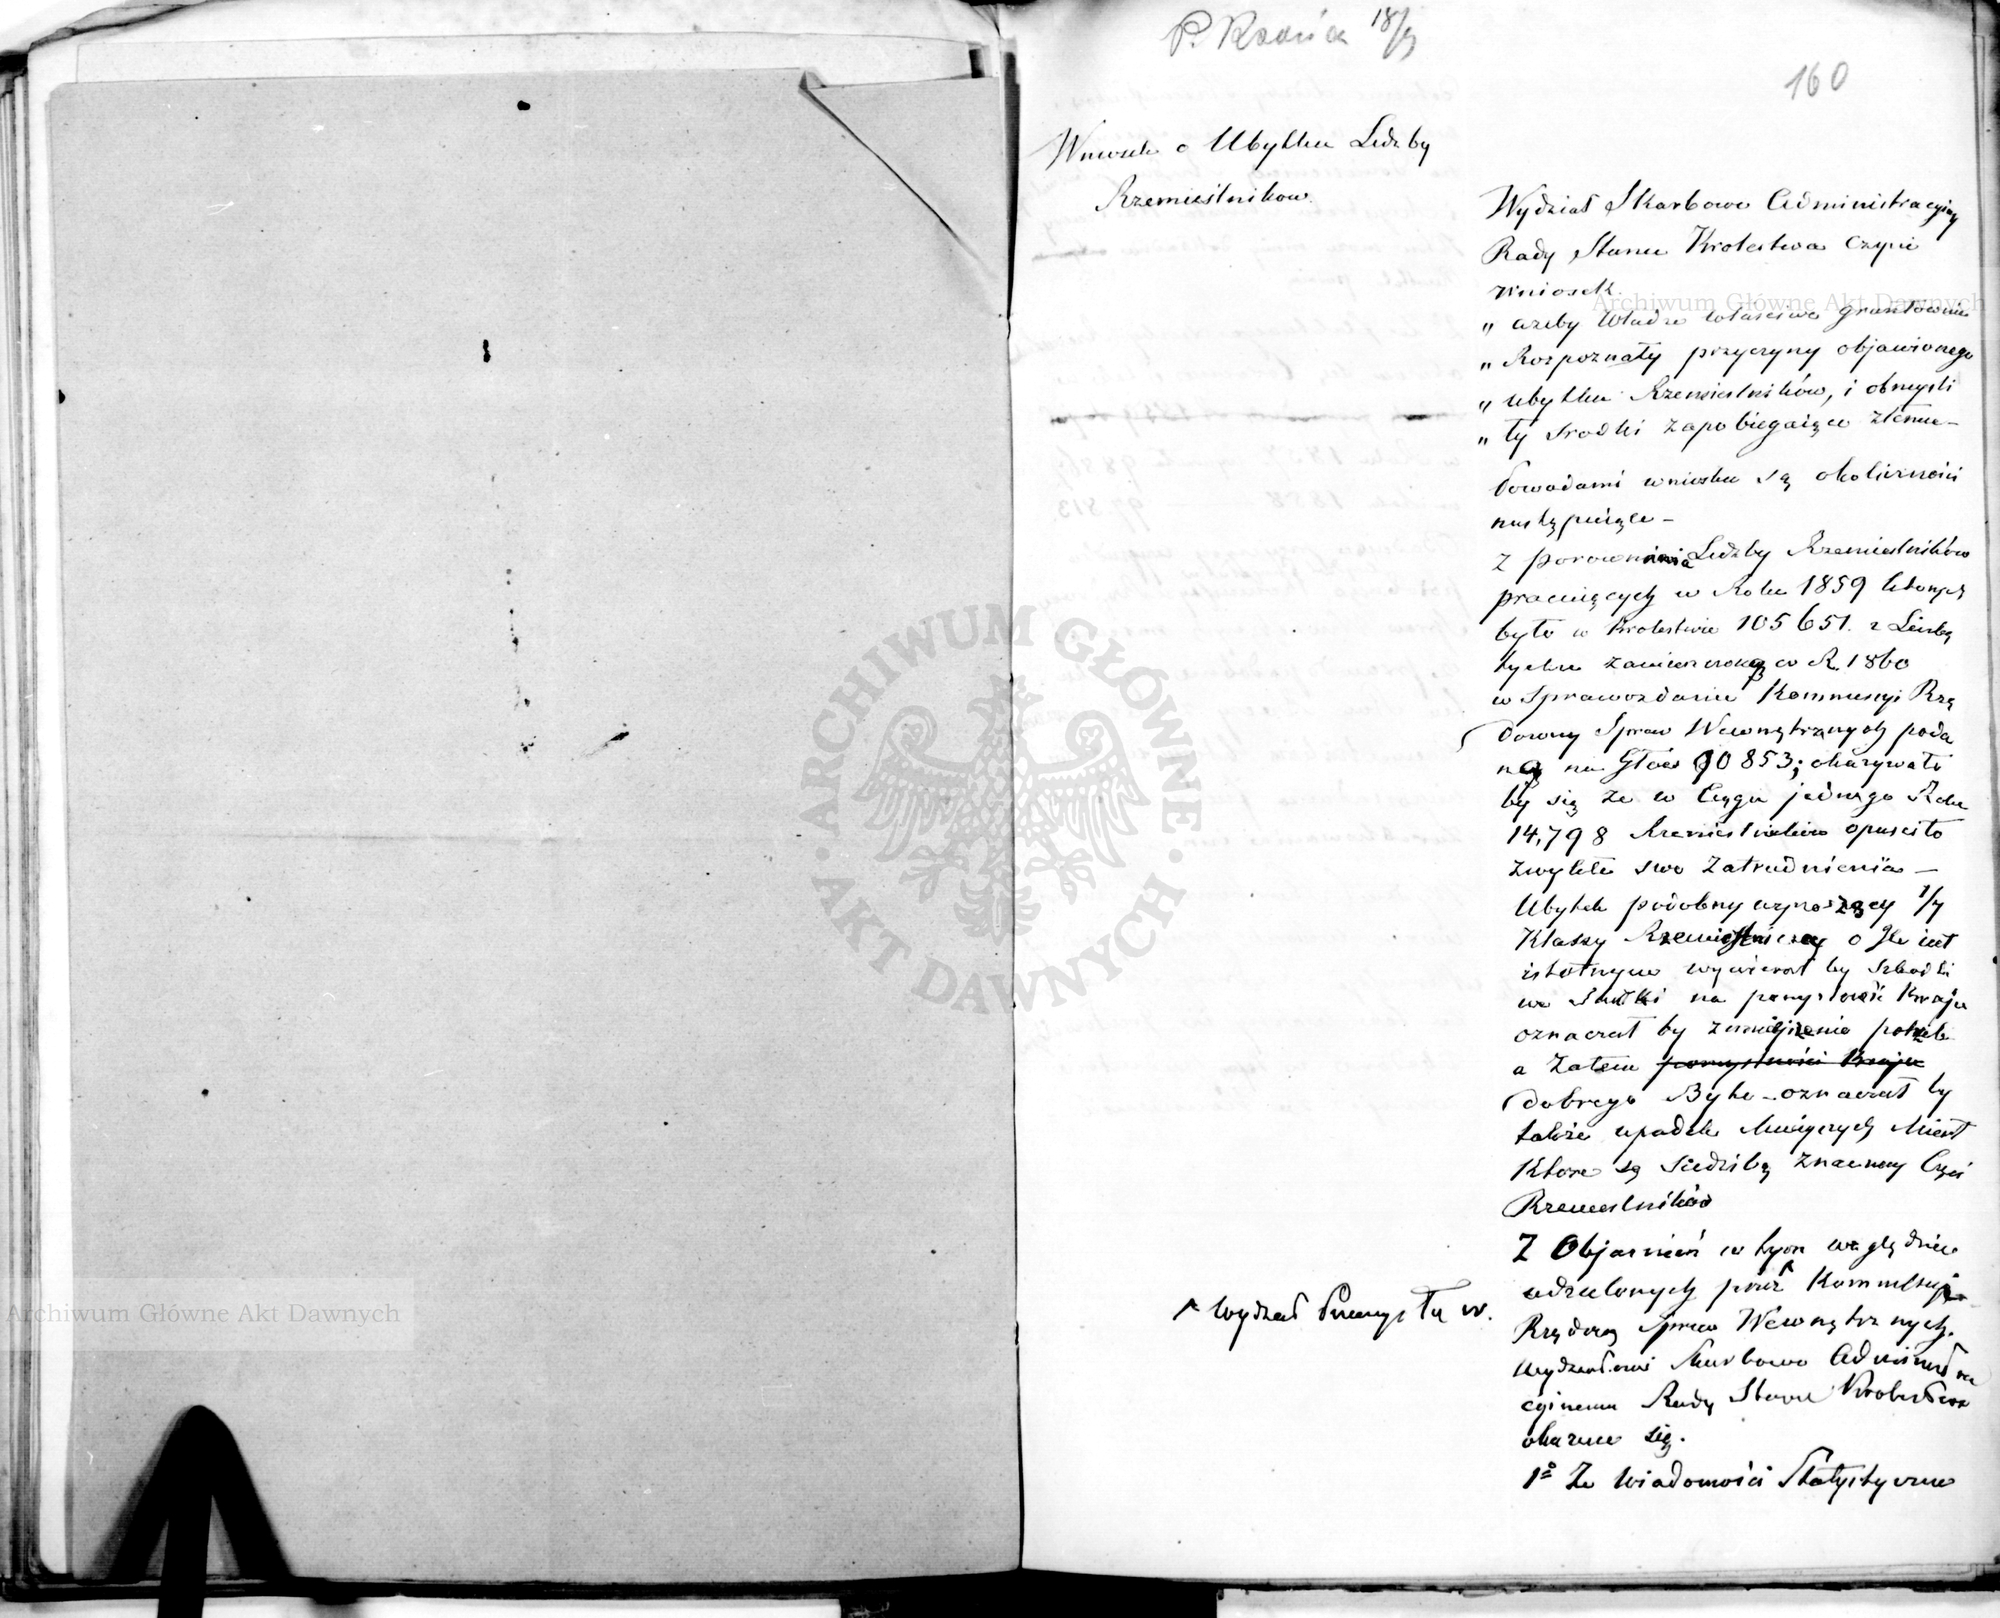 18/4
160
Wniosek o Ubytku Liczby
Rzemieślnikow.
Wydział Skarbowo Administracyjny
Rady Stanu Krolestwa czyni
wniosek.
„ azeby Władze właściwe gruntownie
„ Rozpoznały przyczyny objawionego
„ ubytku Rzemieślników, i obmyśli
„ ły srodki zapobiegaiące złemu –
Dowodami wniosku są okoliczności
następuiące –
z porownania Liczby Rzemieslników
pracuiących w Roku 1859 ktorych
było w Krolestwie 105651. z Liczbą
tychże zamieszczoną w R. 1860
w Sprawozdaniu Kommissyi Rzą
dowey Spraw Wewnętrznych poda
ną na Głow 90853; okazywało
by się że w Ciągu jednego Roku
14,798 Rzemieslnikow opuściło
zwykłe swe Zatrudnienia –
Ubytek podobny wynoszący 1/7
Klassy Rzemieślniczey o Ile iest
istotnym wywierał by szkodli
we Skutki na pomyslność Kraju
oznaczał by zmnieyszenie potrzeb
a Zatem pomyslności Kraju
dobrego Bytu – oznaczał by
także upadek Mnieyszych Miast
Ktore są siedzibą Znaczney Częśi
Rzemieslników
Z Objasnień w tym względzie
udzielonych przez ^ Kommissyi
^ Wydział Przemysłu w.
Rządowey Spraw Wewnętrznych.
Wydziałowi Skarbowo Administra
cyinemu Rady Stanu Krolestwa
okazuie się.
1º Że Wiadomości Statystyczne
Archiwum Główne Akt Dawnych
Archiwum Główne Akt Dawnych
ARCHIWUM GŁÓWNE · AKT DAWNYCH ·